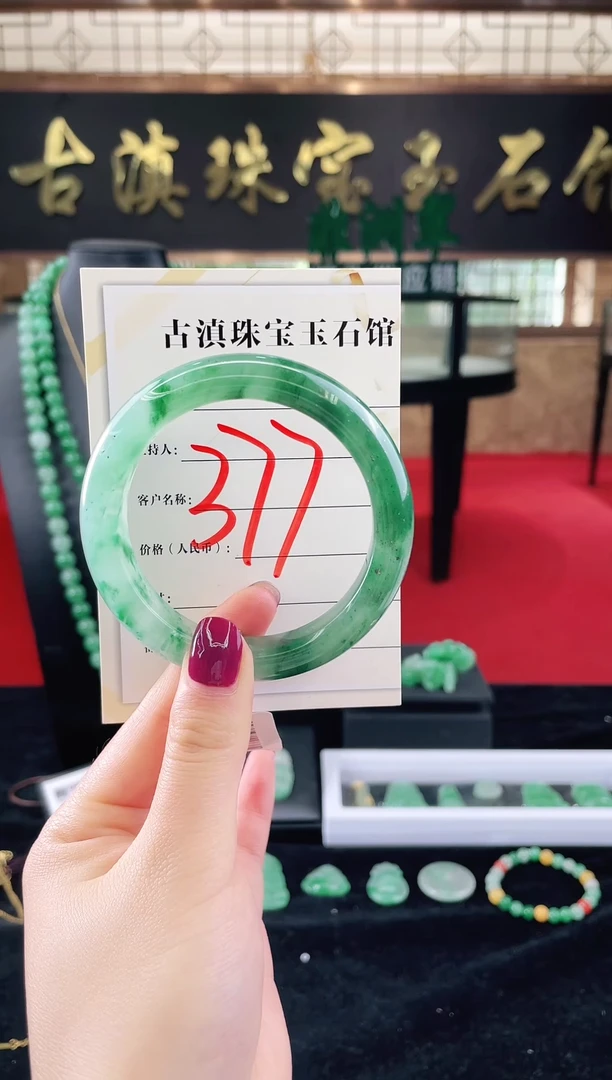 古滇珠宝玉石馆
古滇珠宝玉石馆
持人：
客户名称：
377
价格（人民币）：